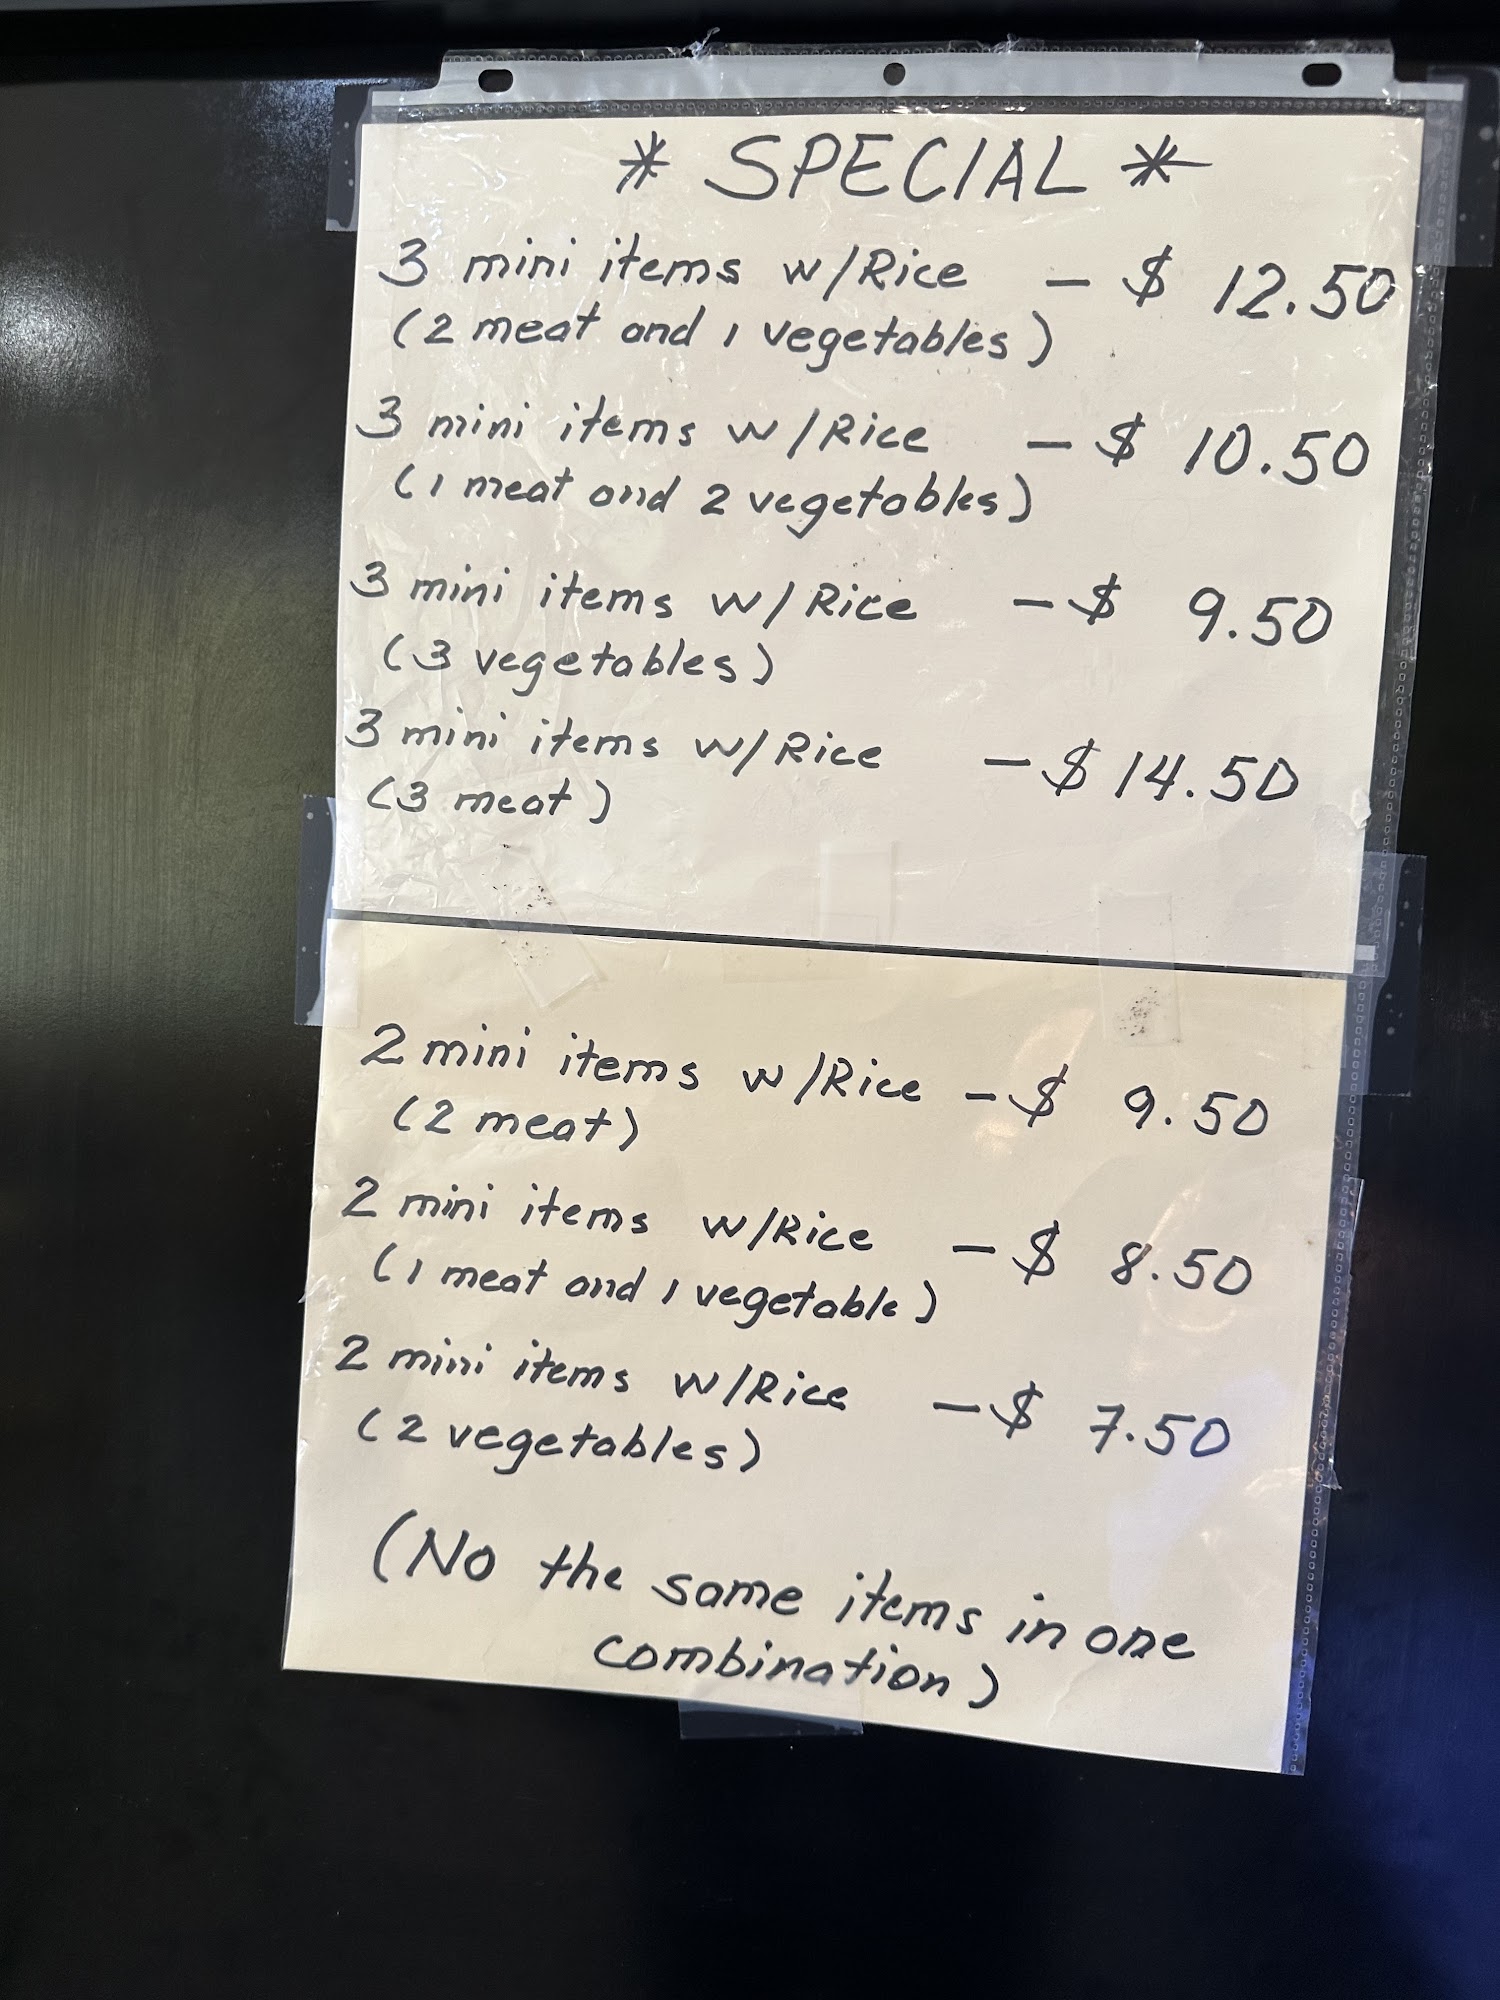 * SPECIAL *
3 mini items w/Rice - $ 12.50
(2 meat and 1 vegetables)
3 mini items w/Rice - $ 10.50
(1 meat and 2 vegetables)
3 mini items w/Rice - $ 9.50
(3 vegetables)
3 mini items w/Rice - $ 14.50
(3 meat)
2 mini items w/Rice - $ 9.50
(2 meat)
2 mini items w/Rice - $ 8.50
(1 meat and 1 vegetable)
2 mini items w/Rice - $ 7.50
(2 vegetables)
(No the same items in one
combination)